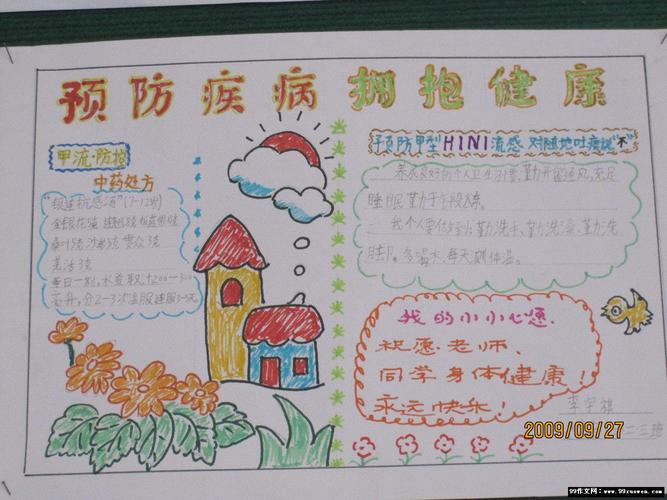 预防疾病 拥抱健康
甲流·防措
中药处方
预防甲型H1N1流感 对随地吐痰说"不"
养成良好的个人卫生习惯,勤开窗通风,充足
睡眠,勤于
我个人要做好:勤洗手、勤洗澡、勤洗
脚。多喝水,每天测体温。
金银花
3克
羌活3克
每日一剂,水煎取汁200—300
毫升,分2—3次温服 连服3—5天
我的小小心愿
祝愿老师、
同学身体健康!
永远快乐!
李宇
二三班
2009/09/27
99作文网:www.99zuowen.com